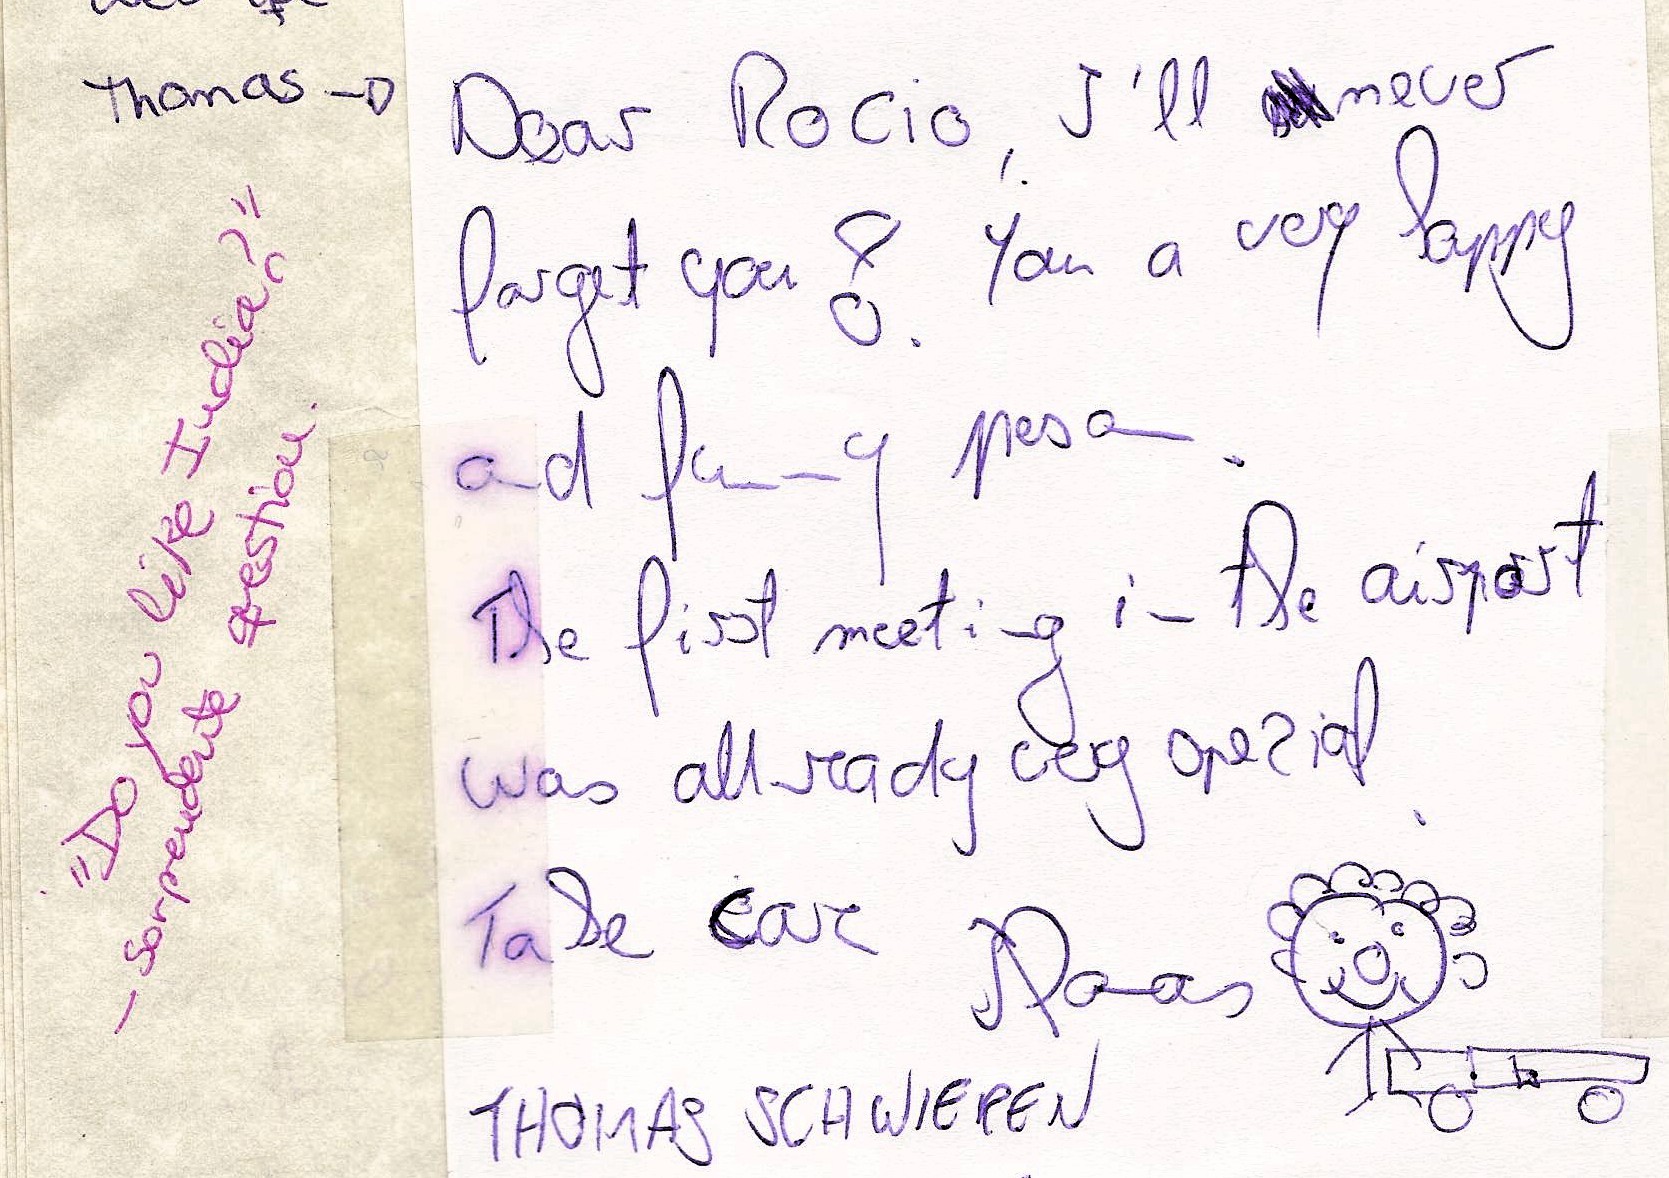 Thomas →
Dear Rocio, I'll never
forget you! You a very happy
and funny peson.
The first meeting in the airport
was allready very spezial.
Take care Thomas
THOMAS SCHWIEREN
"Do you like India?"
- sorprendente question.